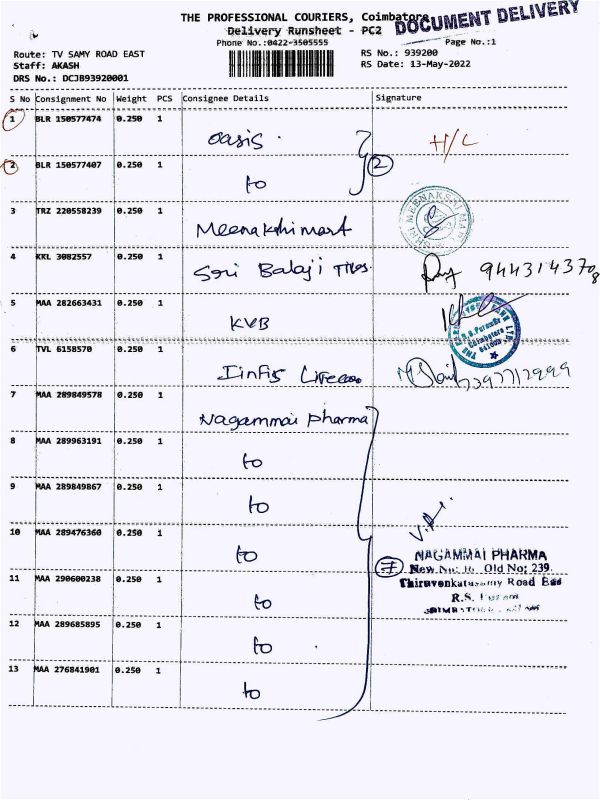 THE PROFESSIONAL COURIERS, Coimbatore
DOCUMENT DELIVERY
Delivery Runsheet - PC2
Phone No.:0422-3505555
Page No.:1
Route: TV SAMY ROAD EAST
RS No.: 939200
Staff: AKASH
RS Date: 13-May-2022
DRS No.: DCJB93920001
S No Consignment No Weight PCS Consignee Details Signature
1 BLR 150577474 0.250 1
oasis. H/L
2 BLR 150577407 0.250 1
to
2
3 TRZ 220558239 0.250 1
Meenakshi mart
SHRI MEENAKSHI MART
4 KKL 3082557 0.250 1
Sri Balaji Tiles.
5 MAA 282663431 0.250 1
KVB
R.S. Puram Br
Coimbatore
6 TVL 6158570 0.250 1
7 MAA 289849578 0.250 1
Nagammai pharma
8 MAA 289963191 0.250 1
to
9 MAA 289849867 0.250 1
to
10 MAA 289476360 0.250 1
to
7
NAGAMMAI PHARMA
New No: 16 Old No: 239.
11 MAA 290600238 0.250 1
Thiruvenkatasamy Road East
R.S. Puram
to
12 MAA 289685895 0.250 1
to
13 MAA 276841901 0.250 1
to